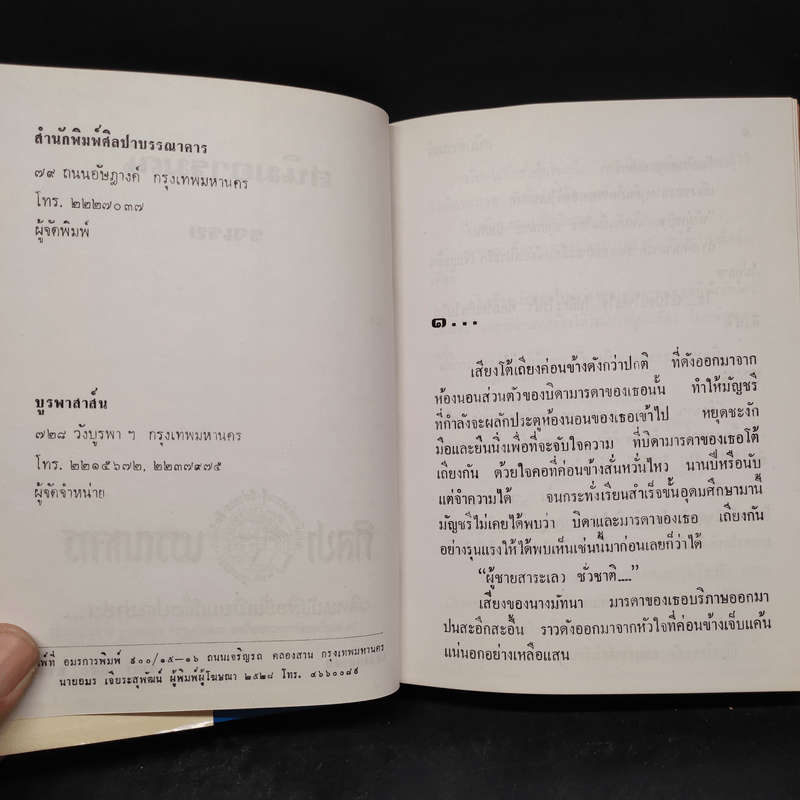 สำนักพิมพ์ศิลปาบรรณาคาร
๗๙ ถนนอัษฎางค์ กรุงเทพมหานคร
โทร. ๒๒๒๗๐๓๗
ผู้จัดพิมพ์
บูรพาสาส์น
๗๒๘ วังบูรพา ฯ กรุงเทพมหานคร
โทร. ๒๒๑๕๖๗๒, ๒๒๓๗๙๗๕
ผู้จัดจำหน่าย
ที่ อมรการพิมพ์ ๙๐๐/๑๕—๑๖ ถนนเจริญรถ คลองสาน กรุงเทพมหานคร
นายอมร เจียระสุพัฒน์ ผู้พิมพ์ผู้โฆษณา ๒๕๒๘ โทร. ๔๖๖๐๐๘๙
๑...
เสียงโต้เถียงค่อนข้างดังกว่าปกติ ที่ดังออกมาจาก
ห้องนอนส่วนตัวของบิดามารดาของเธอนั้น ทำให้มัญชรี
ที่กำลังจะผลักประตูห้องนอนของเธอเข้าไป หยุดชะงัก
มือและยืนนิ่งเพื่อที่จะจับใจความ ที่บิดามารดาของเธอโต้
เถียงกัน ด้วยใจคอที่ค่อนข้างสั่นหวั่นไหว นานปีหรือนับ
แต่จำความได้ จนกระทั่งเรียนสำเร็จชั้นอุดมศึกษามานี้
มัญชรีไม่เคยได้พบว่า บิดาและมารดาของเธอ เถียงกัน
อย่างรุนแรงให้ได้พบเห็นเช่นนี้มาก่อนเลยก็ว่าได้
“ผู้ชายสาระเลว ชั่วชาติ....”
เสียงของนางมัทนา มารดาของเธอบริภาษออกมา
ปนสะอึกสะอื้น ราวดังออกมาจากหัวใจที่ค่อนข้างเจ็บแค้น
แน่นอกอย่างเหลือแสน